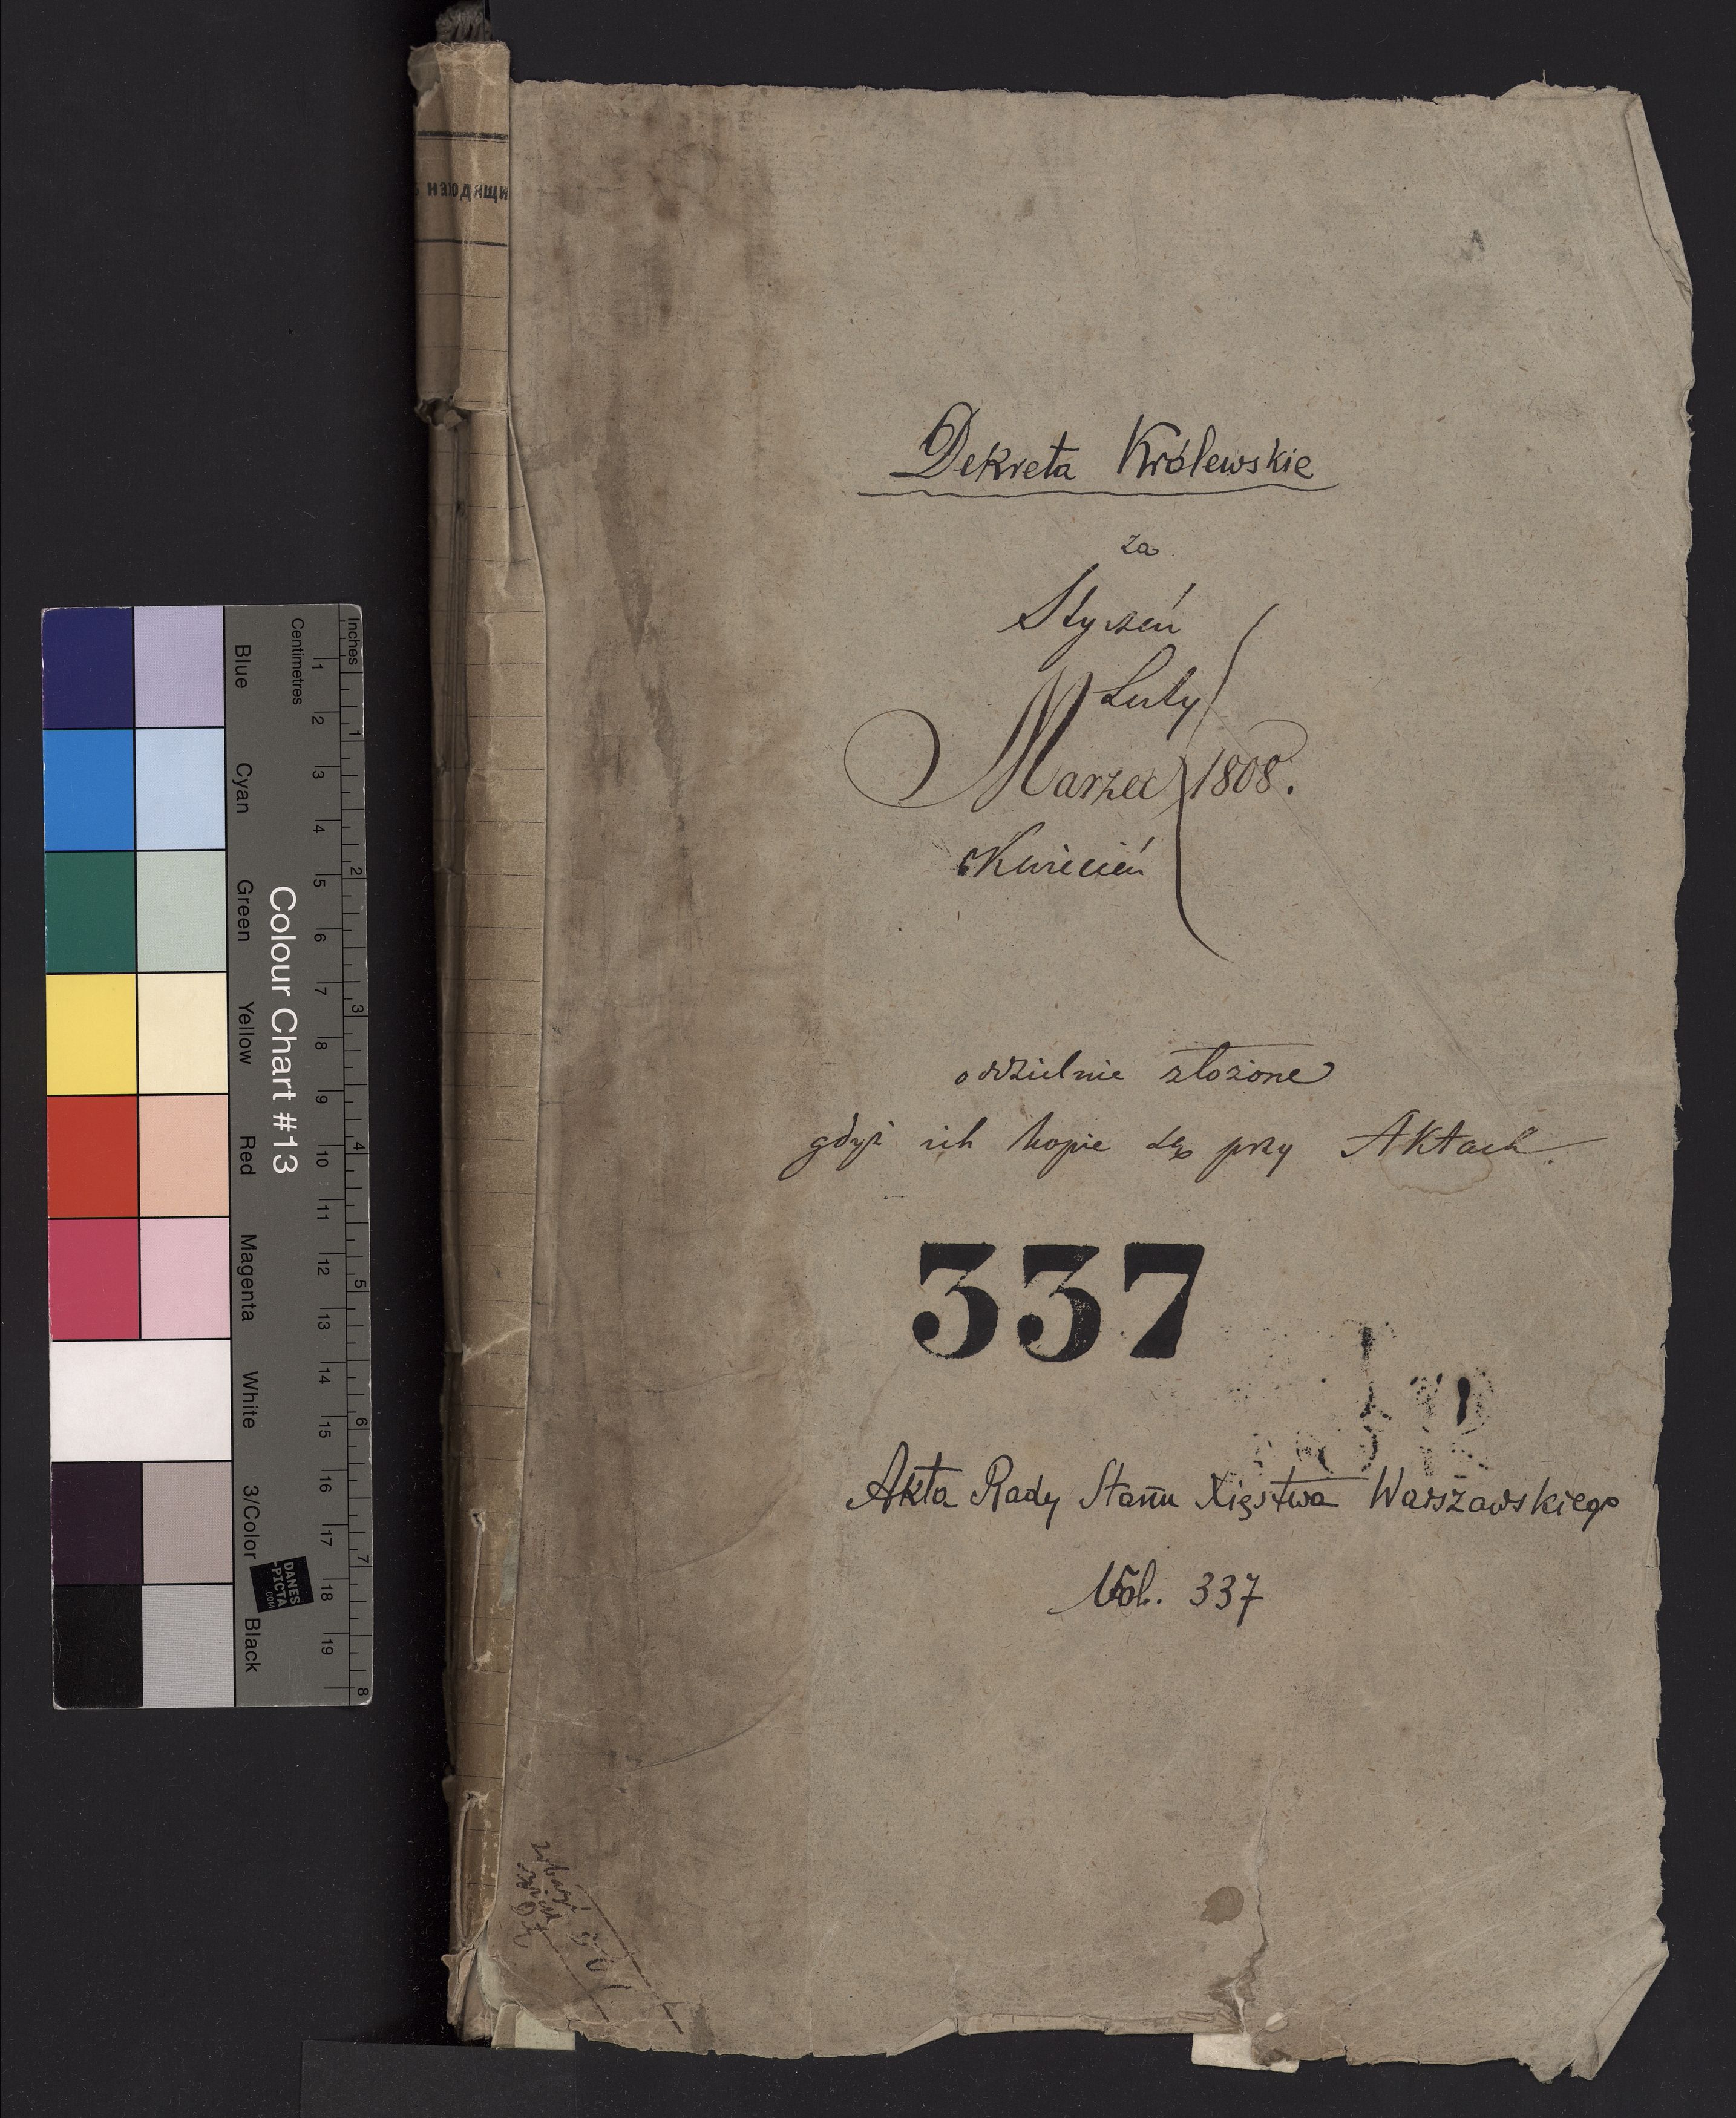 находящи
Dekreta Królewskie
za
Styczeń
Luty
Marzec 1808.
Kwiecień
oddzielnie złożone
gdyż ich kopie są przy Aktach.
337
Akta Rady Stanu Xięstwa Warszawskiego
Vol. 337
Inches
Centimetres
1 2 3 4 5 6 7 8 9 10 11 12 13 14 15 16 17 18 19
1 2 3 4 5 6 7 8
Colour Chart #13
Blue Cyan Green Yellow Red Magenta White 3/Color Black
DANES
PICTA
.COM